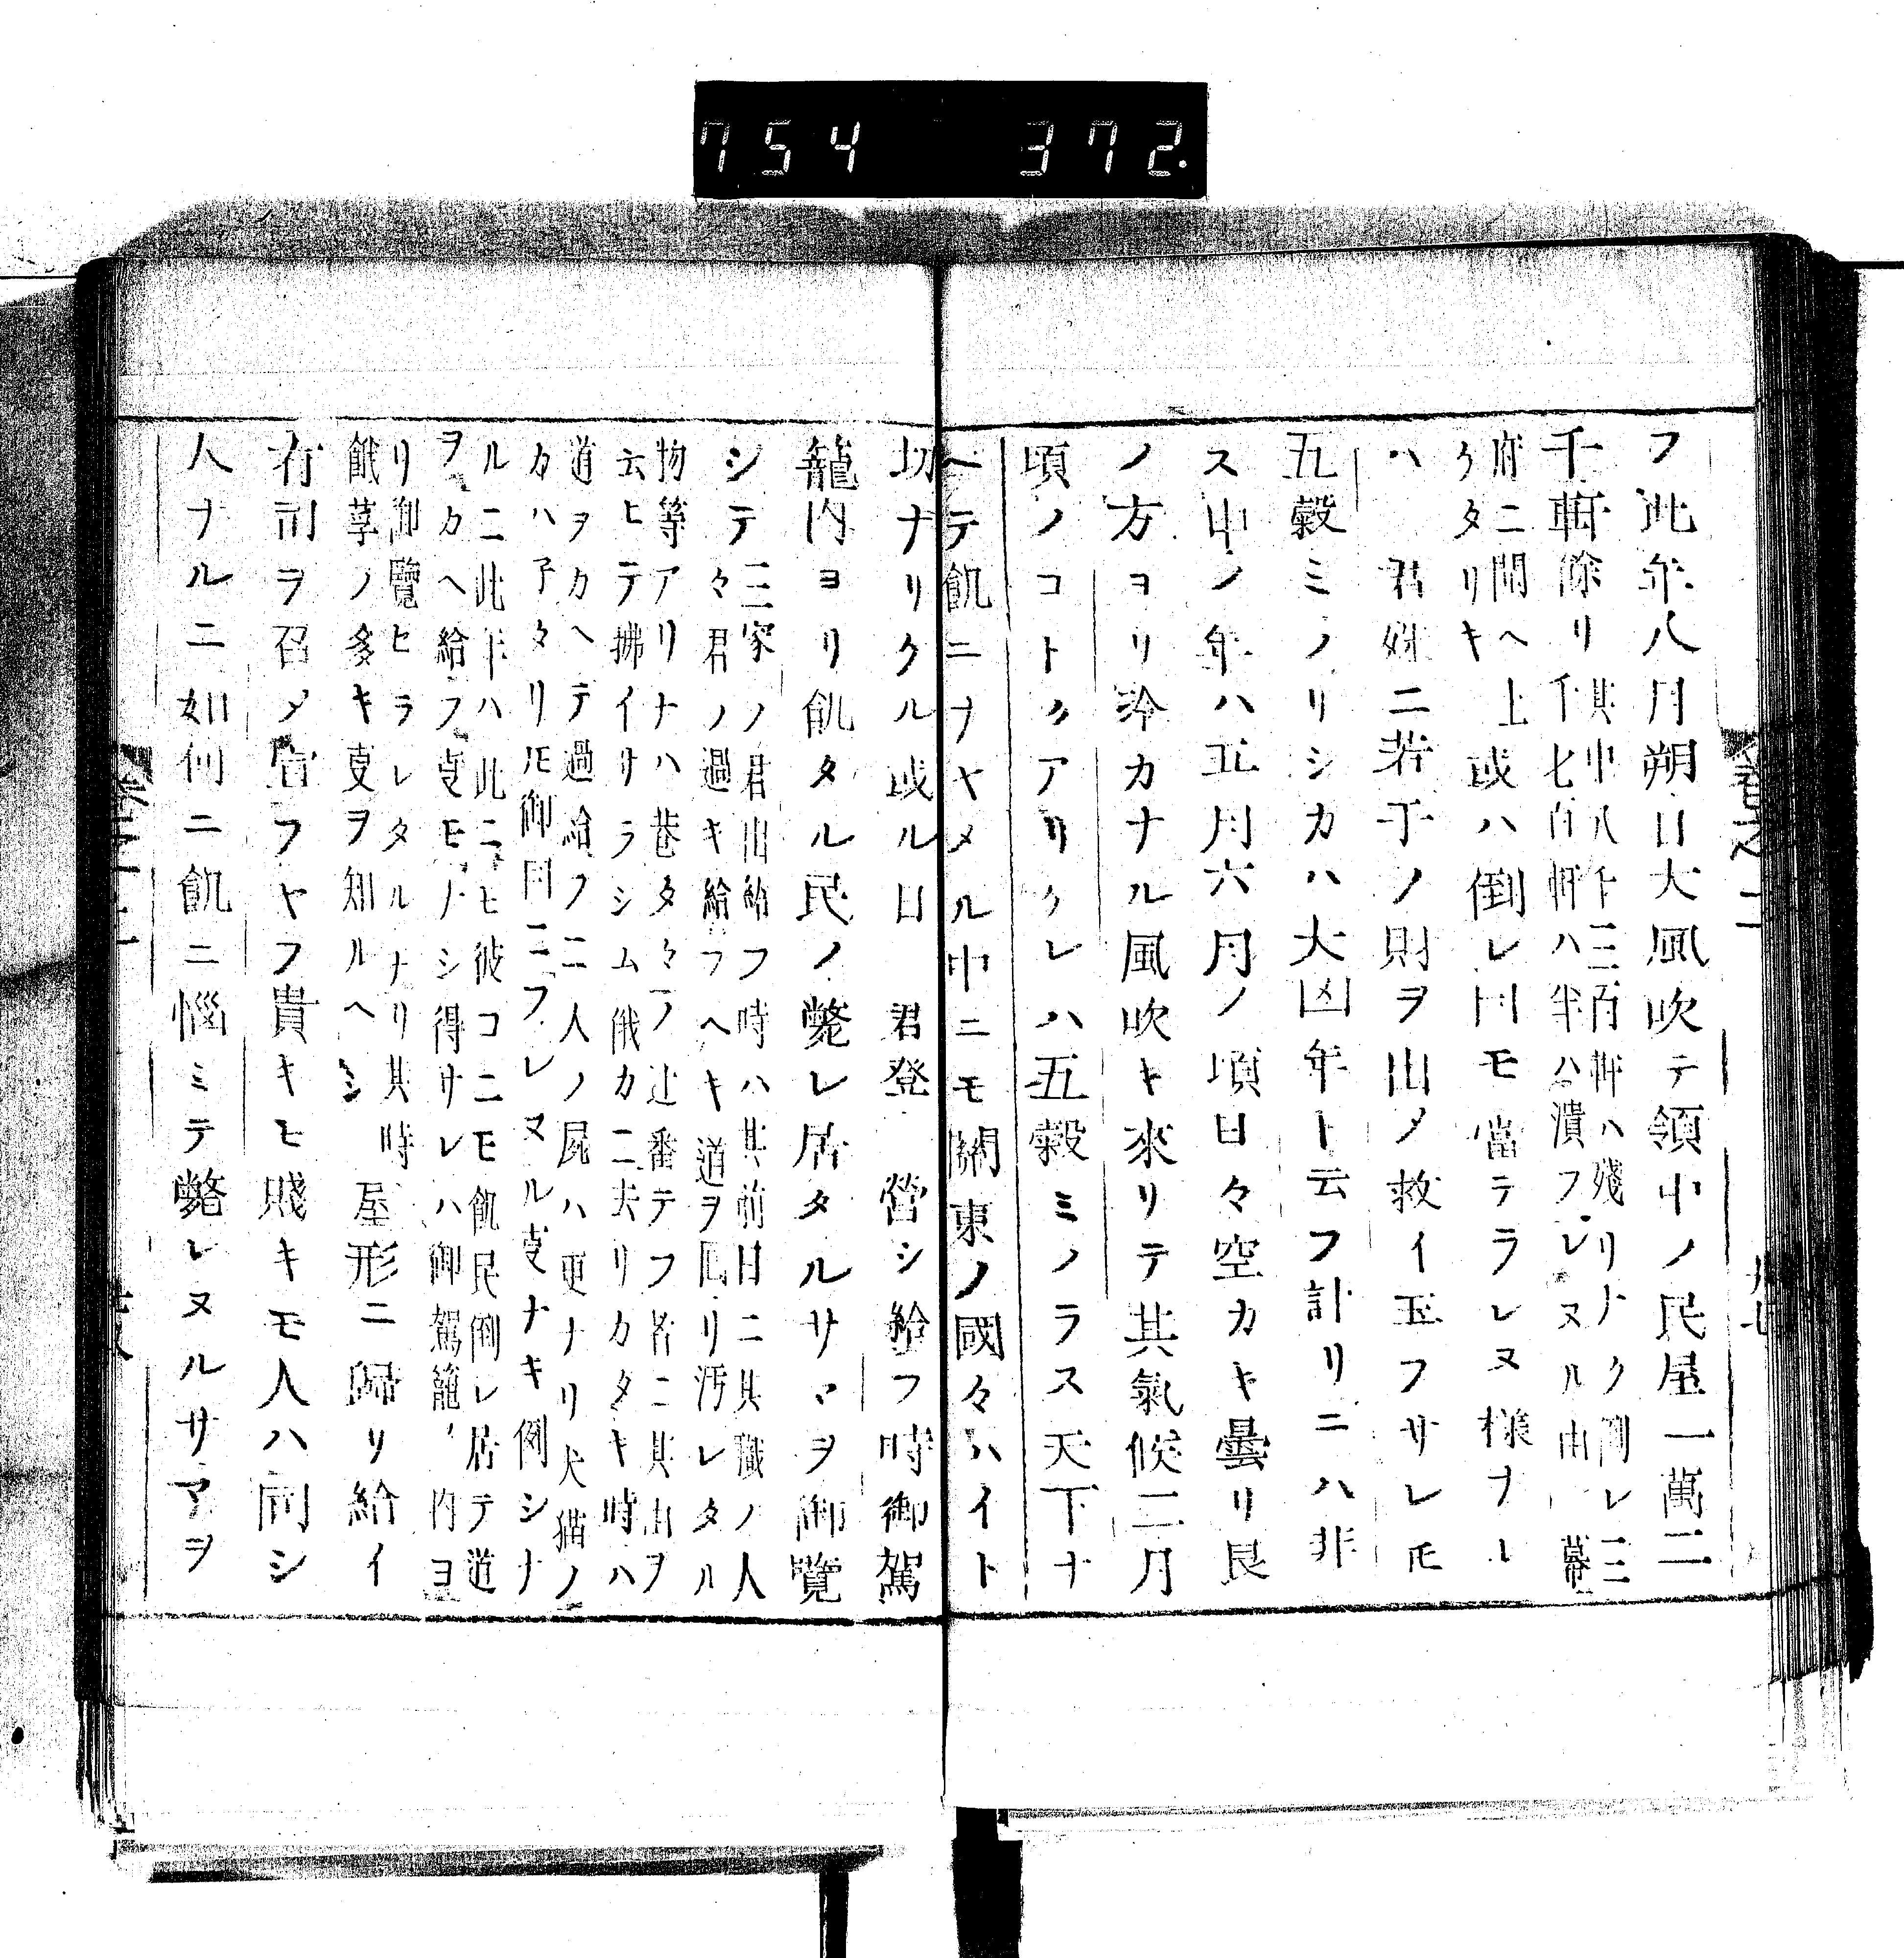 754 372.
卷之二
フ此年八月朔日大風吹テ領中ノ民屋一萬二
千軒餘リ
其中八千三百軒ハ殘リナク倒レ三
千七百軒ハ半ハ潰フレヌル由 幕
府ニ聞ヘ上
ケタリキ
或ハ倒レ田モ當テラレヌ様ナレ
ハ 君姓ニ若干ノ財ヲ出メ救イ玉フサレ𪜈
五穀ミノリシカハ大凶年ト云フ計リニハ非
ス中ノ年ハ五月六月ノ頃日々空カキ曇リ艮
ノ方ヨリ冷カナル風吹キ來リテ其氣候二月
頃ノコトクアリケレハ五穀ミノラス天下ナ
ヘテ飢ニナヤメル中ニモ關東ノ國々ハイト
切ナリクル或ル日 君登 營シ給フ時御駕
籠内ヨリ飢タル民ノ斃レ居タルサマヲ御覽
シテ
三家ノ君出給フ時ハ其前日ニ其職ノ人
々君ノ過キ給フヘキ道ヲ囘リ汚レタル
物等アリナハ巷タ々ノ辻番テフ者ニ其由ヲ
云ヒテ拂イサラシム俄カニ去リカタキ時ハ
道ヲカヘテ過給フニ人ノ屍ハ更ナリ犬猫ノ
カハ子タリ𪜈御目ニフレヌル叓ナキ例シナ
ルニ此年ハ此ニヒ彼コニモ飢民倒レ居テ道
ヲカヘ給フ叓モナシ得サレハ御駕籠ノ内ヨ
リ御覽ヒラレタルナリ其時
餓莩ノ多キ叓ヲ知ルヘシ
屋形ニ歸リ給イ
有司ヲ召メ宣フヤフ貴キヒ賤キモ人ハ同シ
人ナルニ如何ニ飢ニ惱ミテ斃レヌルサマヲ